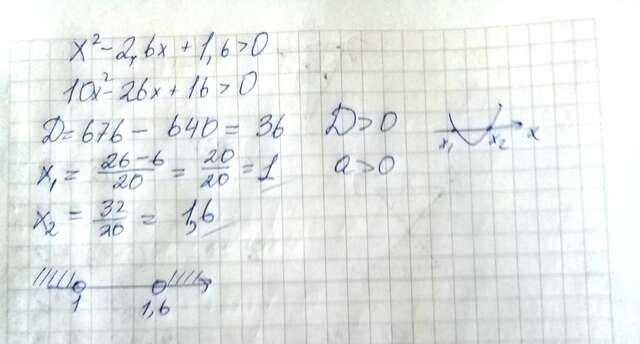 x² - 2,6x + 1,6 > 0
10x² - 26x + 16 > 0
D = 676 - 640 = 36 D > 0
x₁ = 26-6/20 = 20/20 = 1 a > 0
x₂ = 32/20 = 1,6
x₁ x₂ x
1 1,6